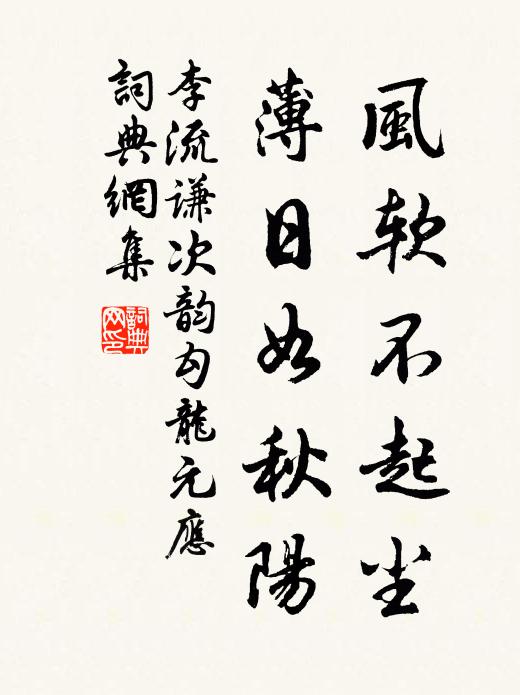 風軟不起尘
薄日如秋陽
李流谦次韵勾龍元應
詞典網集
詞典网印